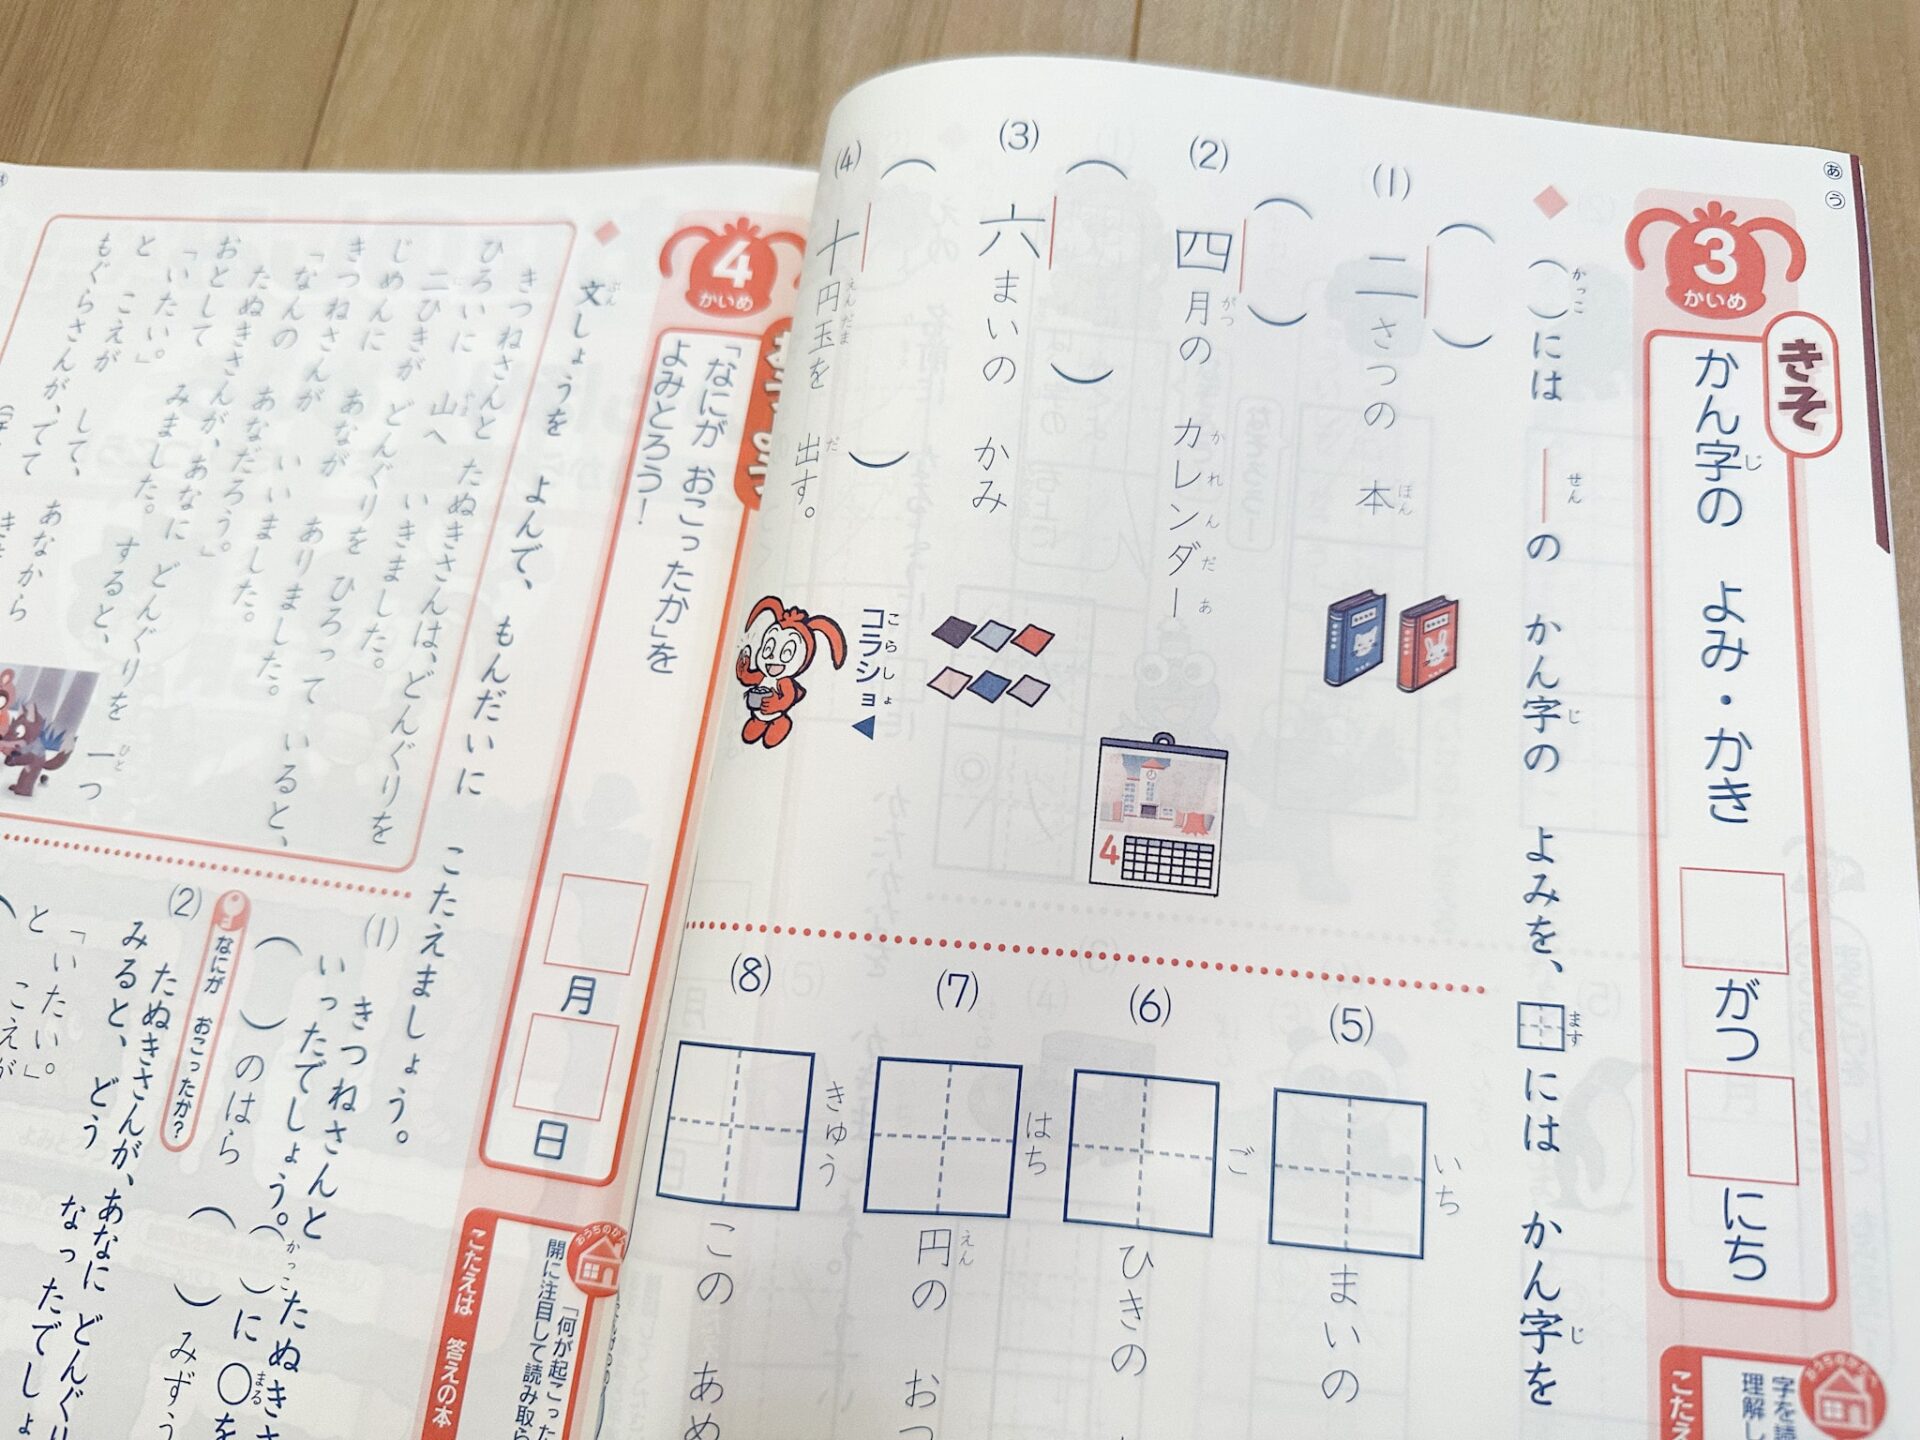 あ
う
3
かいめ
きそ
かん字の よみ・かき
じ
がつ
にち
( )には ―の かん字の よみを、 には かん字を
かっこ
せん
じ
ます
じ
(1)
( )
二さつの 本
ほん
(2)
( )
四月の カレンダー
がつ
かれんだあ
4
(3)
( )
六まいの かみ
(4)
( )
十円玉を 出す。
えんだま
だ
コラショ
こらしょ
(5)
いち
まいの
(6)
ご
ひきの
(7)
はち
円の おつ
えん
(8)
きゅう
この あめ
おうちのかたへ
字を読
理解し
こたえ
4
かいめ
「なにが おこったか」を
よみとろう!
月
日
文しょうを よんで、 もんだいに こたえましょう。
ぶん
きつねさんと たぬきさんは、どんぐりを
ひろいに 山へ いきました。
やま
二ひきが どんぐりを ひろって いると、
じめんに あなが ありました。
きつねさんが いいました。
「なんの あなだろう。」
たぬきさんが、あなに どんぐりを 一つ
ひと
おとして みました。 すると、
「いたい。」
と こえが して、 あなから
もぐらさんが、でて
(1)
きつねさんと たぬきさ
いったでしょう。( )に 〇を
かっこ
まる
( )のはら
( )みずう
なにが おこったか?
(2)
たぬきさんが、あなに どんぐり
みると、どう なったでしょ
「いたい。」
と こえが
おうちのかたへ
「何が起こった
開に注目して読み取ら
こたえは 答えの本